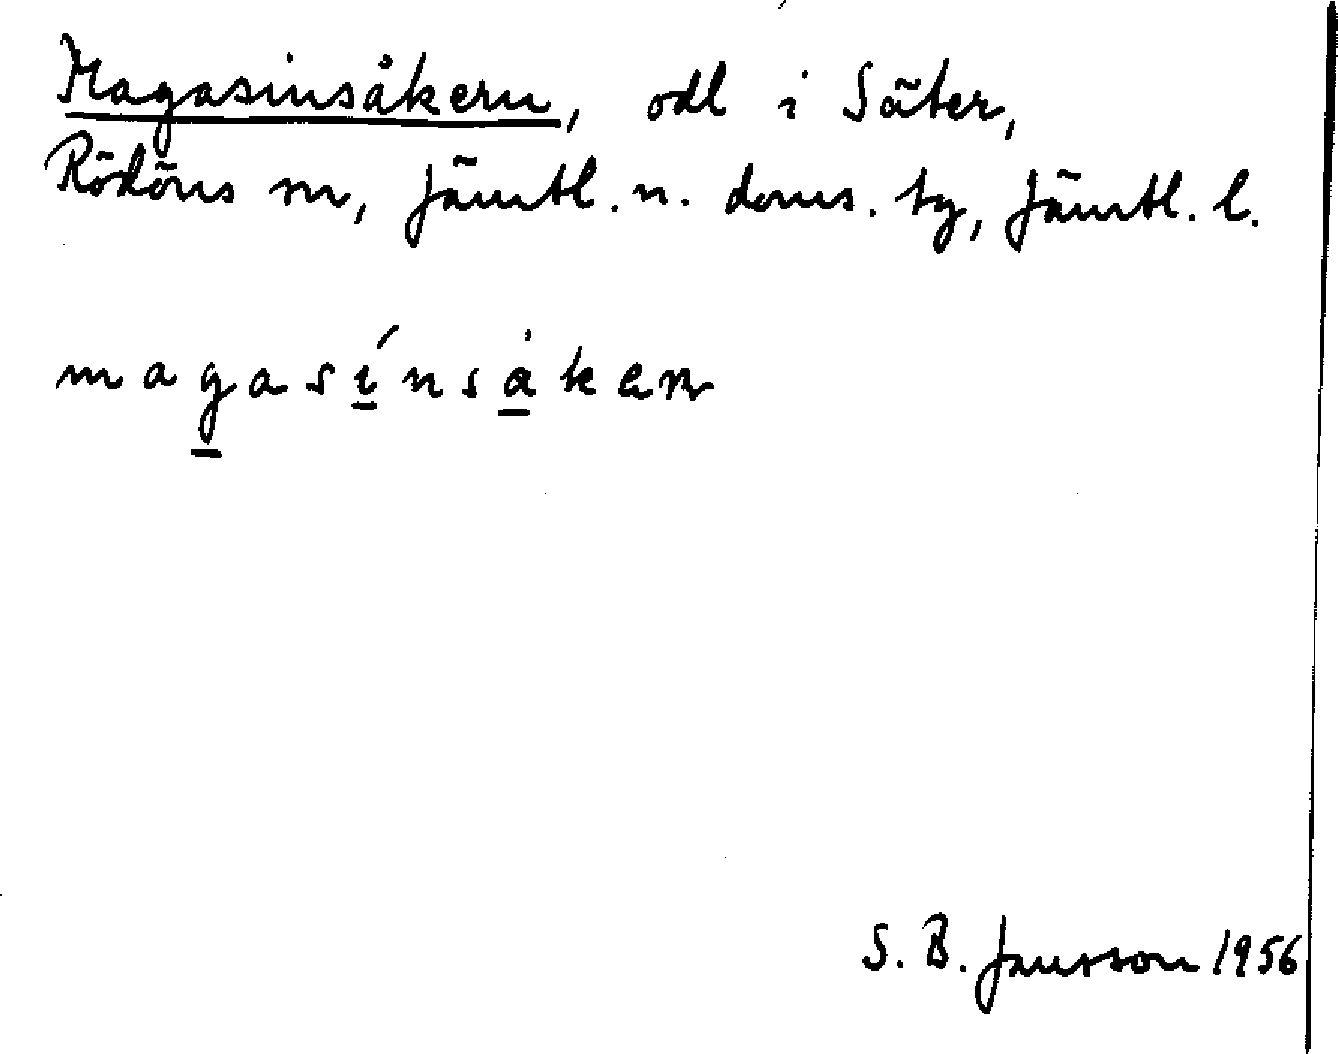 Magasinsåkern, odl i Säter,
Rödöns sn, Jämtl. n. doms. tg, Jämtl. l.
magasínsåken
S. B. Jansson 1956